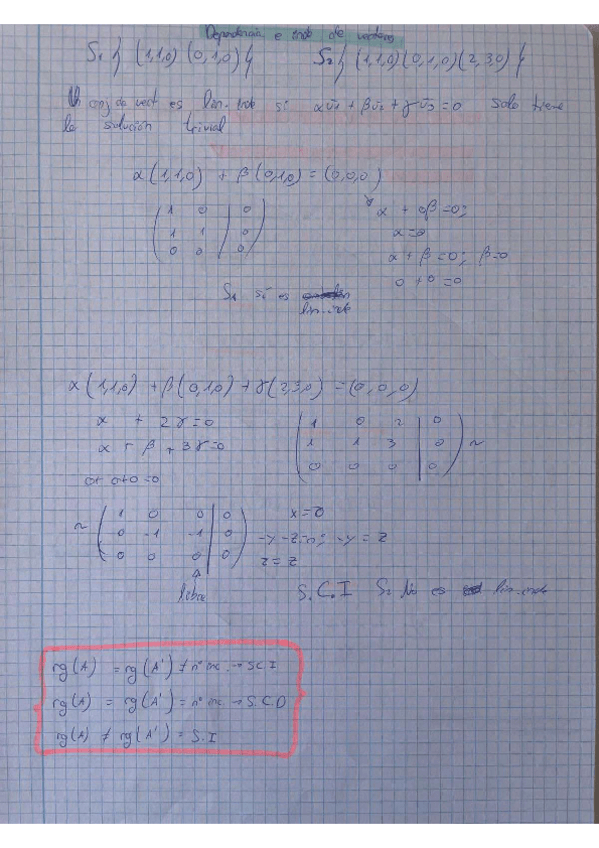 Dependencia e ind de vectores
S₁ { (1,1,0) (0,1,0) } S₂ { (1,1,0) (0,1,0) (2,3,0) }
Un conj de vect es lin-ind si αv̄₁ + βv̄₂ + γv̄₃ = 0 solo tiene
la solución trivial
α(1,1,0) + β(0,1,0) = (0,0,0)
( 1 0 | 0 ) α + 0β = 0;
( 1 1 | 0 ) α = 0
( 0 0 | 0 ) α + β = 0; β = 0
0 + 0 = 0
S₁ si es
lin-ind
α(1,1,0) + β(0,1,0) + γ(2,3,0) = (0,0,0)
α + 2γ = 0 ( 1 0 2 | 0 )
α + β + 3γ = 0 ( 1 1 3 | 0 ) ~
0+0+0=0 ( 0 0 0 | 0 )
( 1 0 0 | 0 ) x = 0
~ ( 0 -1 -1 | 0 ) -y - z = 0; -y = z
( 0 0 0 | 0 ) z = z
libre S.C.I S₂ No es lin-ind
rg(A) = rg(A') ≠ nº inc. → S.C.I
rg(A) = rg(A') = nº inc. → S.C.D
rg(A) ≠ rg(A') = S.I